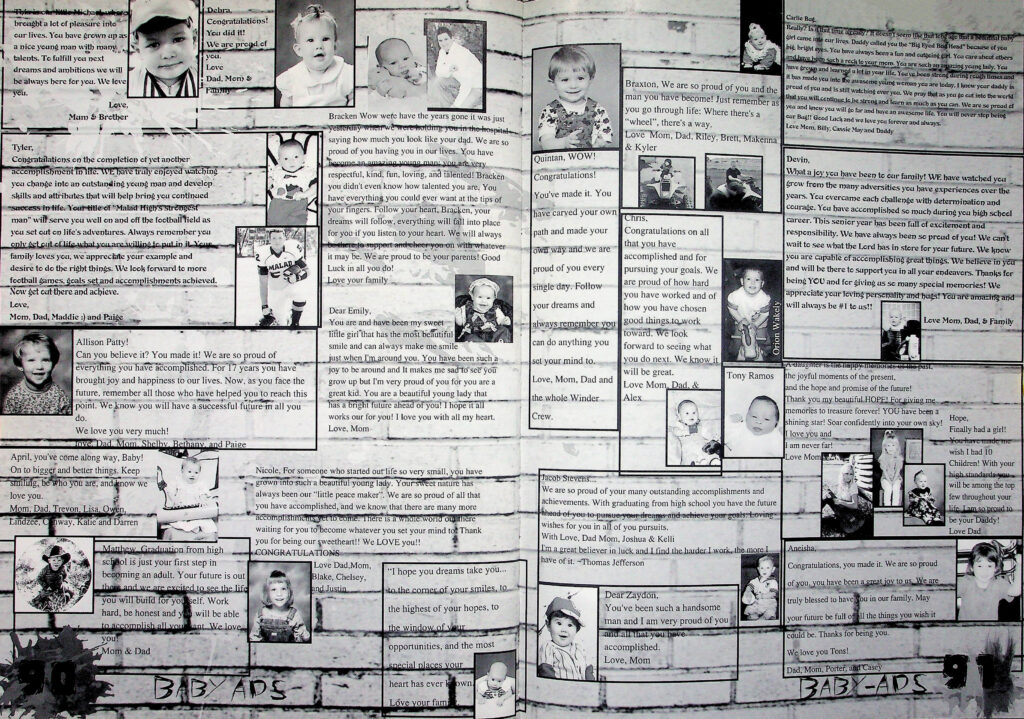 Tyler is our little Michael, who
brought a lot of pleasure into
our lives. You have grown up as
a nice young man with many
talents. To fulfill you next
dreams and ambitions we will
be always here for you. We love
you.
Love,
Mam & Brether
Debra,
Congratulations!
You did it!
We are proud of
you.
Love
Dad, Mom &
Family
Tyler,
Congratulations on the completion of yet another
accomplishment in life. WE have truly enjoyed watching
you change into an outstanding young man and develop
skills and attributes that will help bring you continued
success in life. Your title of "Malad High's strongest
man" will serve you well on and off the football field as
you set out on life's adventures. Always remember you
only get out of life what you are willing to put in it. Your
family loves you, we appreciate your example and
desire to do the right things. We look forward to more
football games, goals set and accomplishments achieved.
Now get out there and achieve.
Love,
Mom, Dad, Maddie :) and Paige
MALAD
Allison Patty!
Can you believe it? You made it! We are so proud of
everything you have accomplished. For 17 years you have
brought joy and happiness to our lives. Now, as you face the
future, remember all those who have helped you to reach this
point. We know you will have a successful future in all you
do.
We love you very much!
love, Dad, Mom, Shelby, Bethany, and Paige
April, you've come along way, Baby!
On to bigger and better things. Keep
smiling, be who you are, and know we
love you.
Mom, Dad, Trevon, Lisa, Owen,
Lindzee, Conway, Katie and Darren
Matthew, Graduation from high
school is just your first step in
becoming an adult. Your future is out
there and we are excited to see the life
you will build for yourself. Work
hard, be honest and you will be able
to accomplish all you want. We love
you!
Mom & Dad
Bracken Wow were have the years gone it was just
yesterday when we were holding you in the hospital
saying how much you look like your dad. We are so
proud of you having you in our lives. You have
become an amazing young man; you are very
respectful, kind, fun, loving, and talented! Bracken
you didn't even know how talented you are. You
have everything you could ever want at the tips of
your fingers. Follow your heart, Bracken, your
dreams will follow, everything will fall into place
for you if you listen to your heart. We will always
be there to support and cheer you on with whatever
it may be. We are proud to be your parents! Good
Luck in all you do!
Love your family
Dear Emily,
You are and have been my sweet
little girl that has the most beautiful
smile and can always make me smile
just when I'm around you. You have been such a
joy to be around and It makes me sad to see you
grow up but I'm very proud of you for you are a
great kid. You are a beautiful young lady that
has a bright future ahead of you! I hope it all
works our for you! I love you with all my heart.
Love, Mom
Nicole, For someone who started out life so very small, you have
grown into such a beautiful young lady. Your sweet nature has
always been our "little peace maker". We are so proud of all that
you have accomplished, and we know that there are many more
accomplishments yet to come. There is a whole world out there
waiting for you to become whatever you set your mind to! Thank
you for being our sweetheart!! We LOVE you!!
CONGRATULATIONS
Love Dad,Mom,
Blake, Chelsey,
and Justin
"I hope you dreams take you...
to the corner of your smiles, to
the highest of your hopes, to
the window of your
opportunities, and the most
special places your
heart has ever known.
Love your family
90
BABY ADS
Quintan, WOW!
Congratulations!
You've made it. You
have carved your own
path and made your
own way and we are
proud of you every
single day. Follow
your dreams and
always remember you
can do anything you
set your mind to.
Love, Mom, Dad and
the whole Winder
Crew.
Braxton, We are so proud of you and the
man you have become! Just remember as
you go through life: Where there's a
"wheel", there's a way.
Love Mom, Dad, Riley, Brett, Makenna
& Kyler
Chris,
Congratulations on all
that you have
accomplished and for
pursuing your goals. We
are proud of how hard
you have worked and of
how you have chosen
good things to work
toward. We look
forward to seeing what
you do next. We know it
will be great.
Love Mom, Dad, &
Alex
Orion Wakely
Tony Ramos
Jacob Stevens...
We are so proud of your many outstanding accomplishments and
achievements. With graduating from high school you have the future
ahead of you to pursue your dreams and achieve your goals. Loving
wishes for you in all of you pursuits.
With Love, Dad Mom, Joshua & Kelli
I'm a great believer in luck and I find the harder I work, the more I
have of it. ~Thomas Jefferson
Dear Zaydon,
You've been such a handsome
man and I am very proud of you
and all that you have
accomplished.
Love, Mom
Carlie Bug,
Really? Is it that time already? It doesn't seem like that long ago that a beautiful baby
girl came into our lives. Daddy called you the "Big Eyed Bug Head" because of you
big, bright eyes. You have always been a fun and outgoing girl. You care about others
and have been such a rock to your mom. You are such an amazing young lady. You
have grown and learned a lot in your life. You've been strong during rough times and
it has made you into the awesome young woman you are today. I know your daddy is
proud of you and is still watching over you. We pray that as you go out into the world
that you will continue to be strong and learn as much as you can. We are so proud of
you and know you will go far and have an awesome life. You will never stop being
our Bug!! Good Luck and we love you forever and always.
Love Mom, Billy, Cassie May and Daddy
Devin,
What a joy you have been to our family! WE have watched you
grow from the many adversities you have experiences over the
years. You overcame each challenge with determination and
courage. You have accomplished so much during you high school
career. This senior year has been full of excitement and
responsibility. We have always been so proud of you! We can't
wait to see what the Lord has in store for your future. We know
you are capable of accomplishing great things. We believe in you
and will be there to support you in all your endeavors. Thanks for
being YOU and for giving us so many special memories! We
appreciate your loving personality and hugs! You are amazing and
will always be #1 to us!!
Love Mom, Dad, & Family
A daughter is the happy memories of the past,
the joyful moments of the present,
and the hope and promise of the future!
Thank you my beautiful HOPE! For giving me
memories to treasure forever! YOU have been a
shining star! Soar confidently into your own sky!
I love you and
I am never far!
Love Mom
Hope,
Finally had a girl!
You have made me
wish I had 10
Children! With your
high standards you
will be among the top
few throughout your
life. I am so proud to
be your Daddy!
Love Dad
Aneisha,
Congratulations, you made it. We are so proud
of you, you have been a great joy to us. We are
truly blessed to have you in our family. May
your future be full of all the things you wish it
could be. Thanks for being you.
We love you Tons!
Dad, Mom, Porter, and Casey
BABY-ADS
91